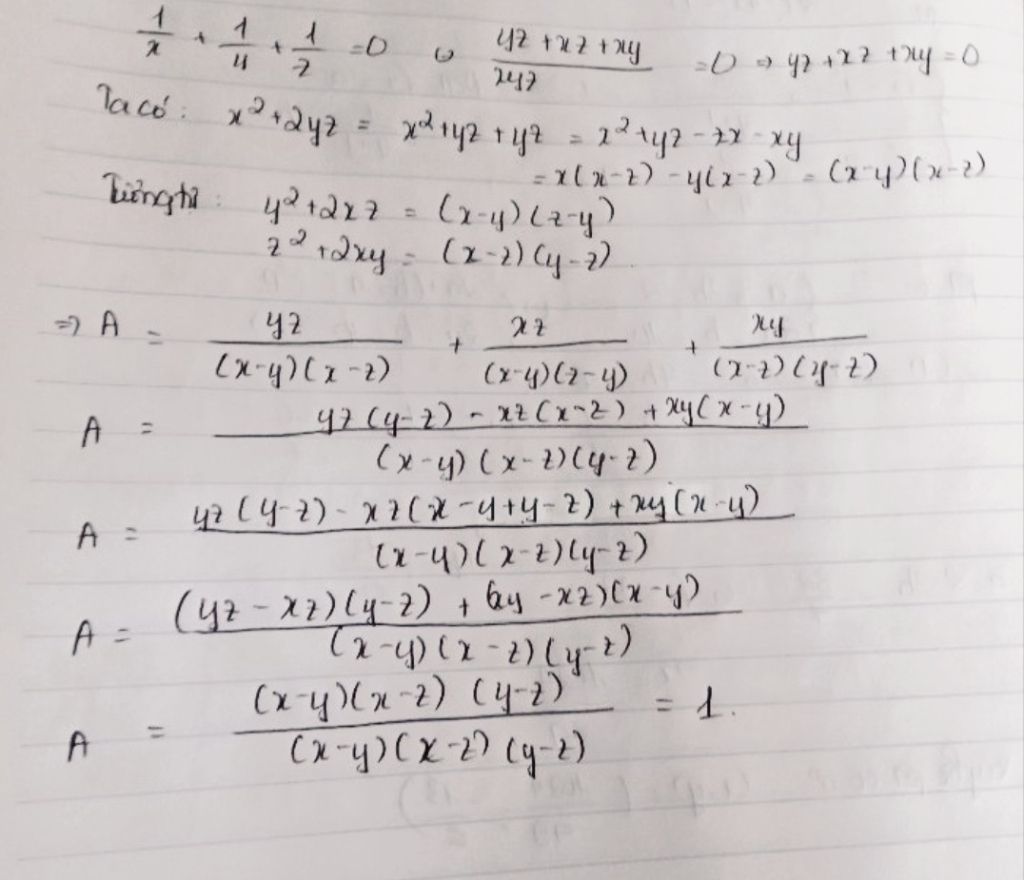 1/x + 1/y + 1/z = 0 ⇔ (yz + xz + xy)/(xyz) = 0 ⇒ yz + xz + xy = 0
Ta có: x² + 2yz = x² + yz + yz = x² + yz - zx - xy
= x(x-z) - y(x-z) = (x-y)(x-z)
Tương tự: y² + 2xz = (x-y)(z-y)
z² + 2xy = (x-z)(y-z).
⇒ A = yz/((x-y)(x-z)) + xz/((x-y)(z-y)) + xy/((x-z)(y-z))
A = (yz(y-z) - xz(x-z) + xy(x-y))/((x-y)(x-z)(y-z))
A = (yz(y-z) - xz(x-y+y-z) + xy(x-y))/((x-y)(x-z)(y-z))
A = ((yz - xz)(y-z) + (xy - xz)(x-y))/((x-y)(x-z)(y-z))
A = ((x-y)(x-z)(y-z))/((x-y)(x-z)(y-z)) = 1.